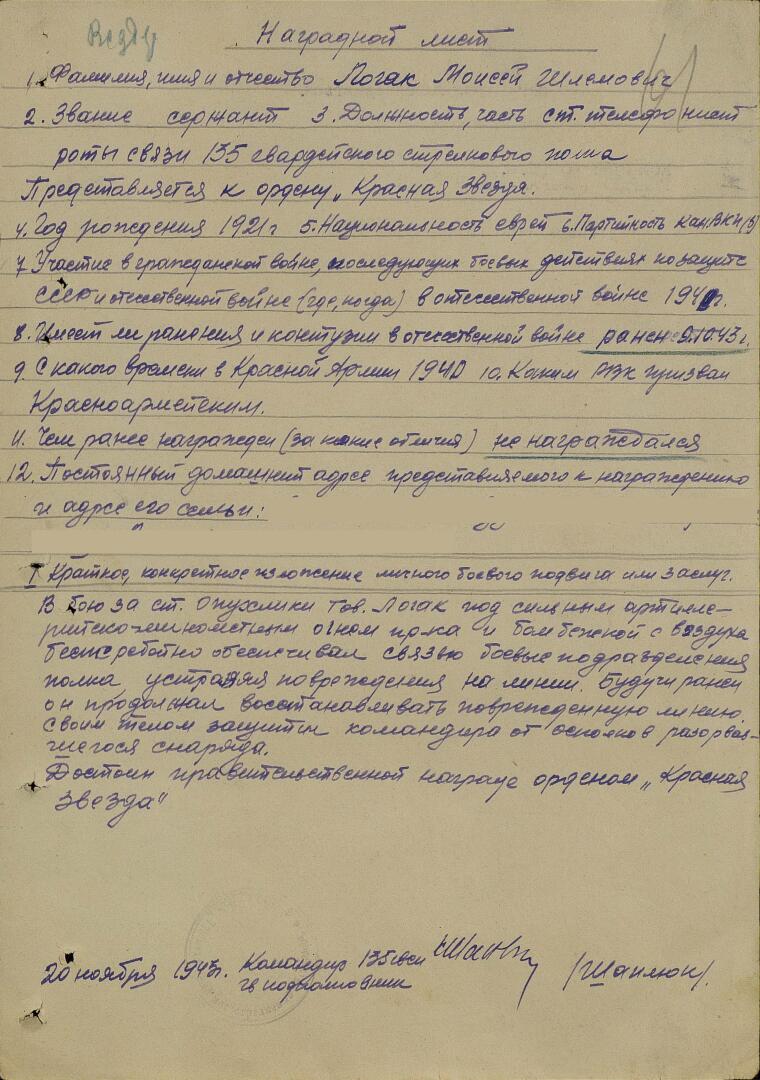 Наградной лист
1. Фамилия, имя и отчество Логак Моисей Шлемович
2. Звание сержант 3. Должность, часть ст. телефонист
роты связи 135 гвардейского стрелкового полка
Представляется к ордену „Красная Звезда.
4. Год рождения 1921 г 5. Национальность еврей 6. Партийность кан. ВКП(б)
7. Участие в гражданской войне, последующих боевых действиях по защите
СССР и отечественной войне (где, когда) в отечественной войне 1941г.
8. Имеет ли ранения и контузии в отечественной войне ранен 9.10.43 г.
9. С какого времени в Красной Армии 1940 10. Каким РВК призван
Красноармейским.
11. Чем ранее награжден (за какие отличия) не награждался
12. Постоянный домашний адрес представляемого к награждению
и адрес его семьи:
I Краткое, конкретное изложение личного боевого подвига или заслуг.
В бою за ст. Опухлики тов. Логак под сильным артилле-
рийско-минометным огнем пр-ка и бомбежкой с воздуха
бесперебойно обеспечивал связью боевые подразделения
полка устраняя повреждения на линии. Будучи ранен
он продолжал восстанавливать поврежденную линию,
своим телом защитил командира от осколков разорвав-
шегося снаряда.
Достоин правительственной награде орденом „Красная
Звезда"
20 ноября 1943г. Командир 135 гвсп
гв подполковник /Шаплюк/.